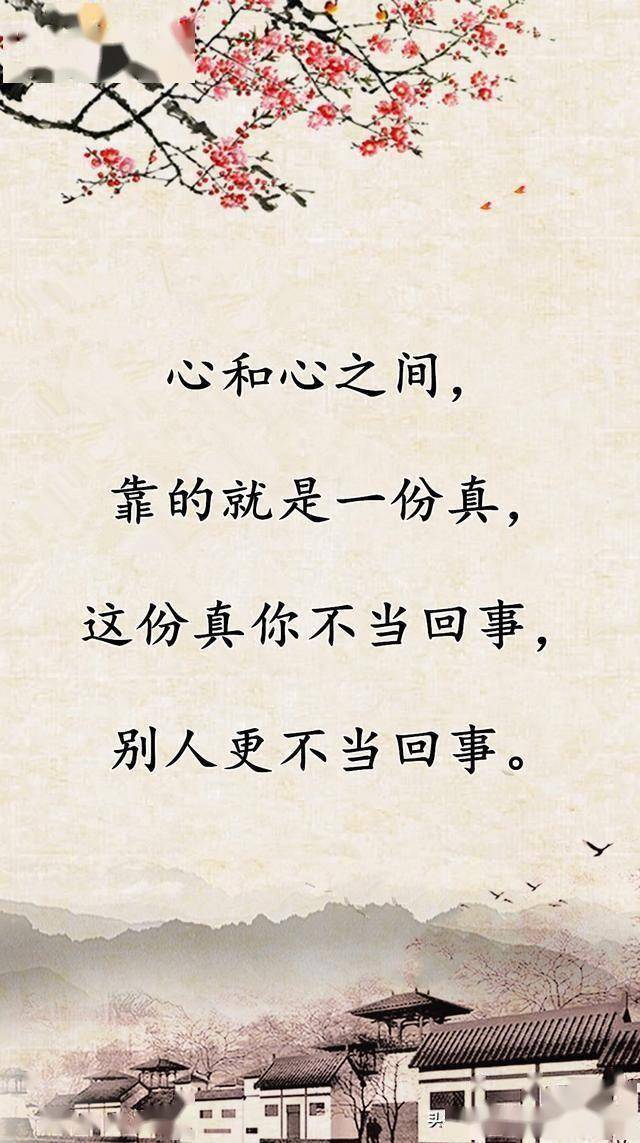 心和心之间，
靠的就是一份真，
这份真你不当回事，
别人更不当回事。
头